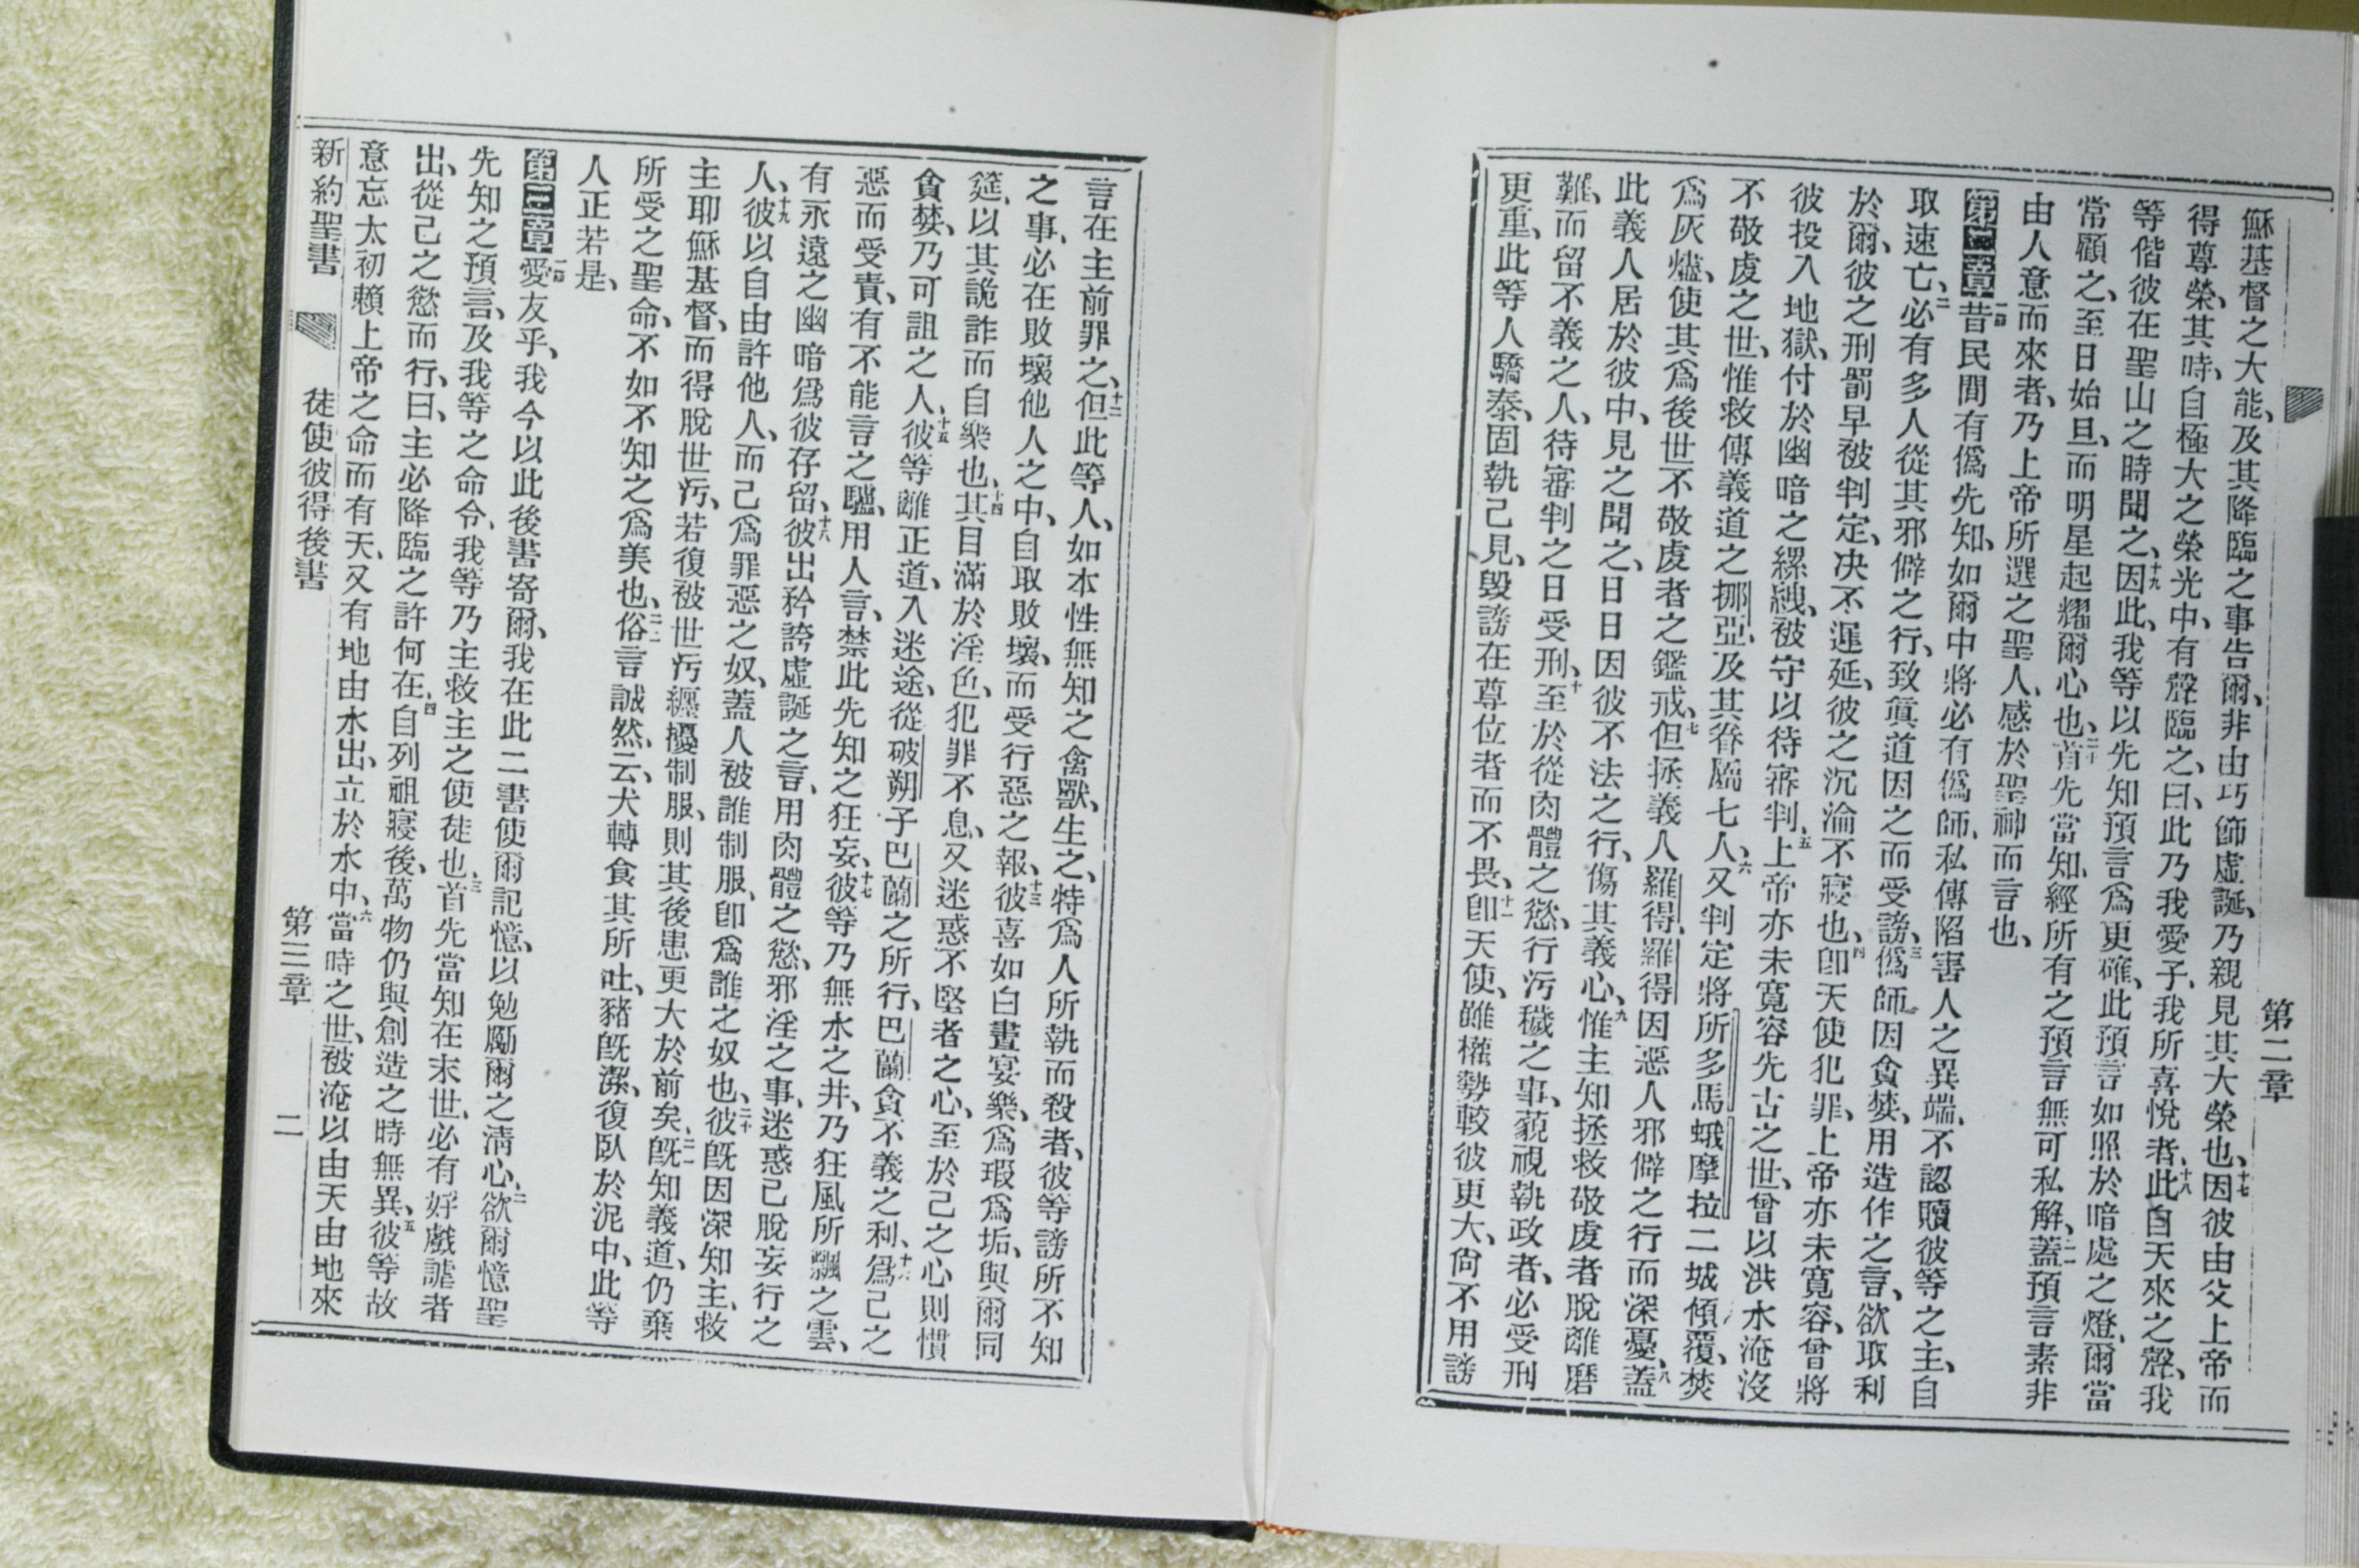 第二章
穌基督之大能、及其降臨之事告爾、非由巧飾虛誕、乃親見其大榮也、十七因彼由父上帝而
得尊榮、其時、自極大之榮光中、有聲臨之、曰、此乃我愛子、我所喜悅者、十八此自天來之聲、我
等偕彼在聖山之時聞之、十九因此、我等以先知預言、爲更確、此預言如照於暗處之燈、爾當
常顧之、至日始旦、而明星起耀爾心也、二十首先當知、經所有之預言無可私解、二一蓋預言素非
由人意而來者、乃上帝所選之聖人、感於聖神而言也、
第二章一節昔民間有僞先知、如爾中將必有僞師、私傳陷害人之異端、不認贖彼等之主、自
取速亡、二必有多人從其邪僻之行、致眞道因之而受謗、三僞師因貪婪、用造作之言、欲取利
於爾、彼之刑罰早被判定、决不遲延、彼之沉淪不寢也、四卽天使犯罪、上帝亦未寬容、曾將
彼投入地獄、付於幽暗之縲絏、被守以待審判、五上帝亦未寬容先古之世、曾以洪水淹沒
不敬虔之世、惟救傳義道之挪亞、及其眷屬七人、六又判定將所多馬蛾摩拉二城傾覆、焚
爲灰燼、使其爲後世不敬虔者之鑑戒、七但拯義人羅得、羅得因惡人邪僻之行而深憂、八蓋
此義人居於彼中、見之聞之、日日因彼不法之行、傷其義心、九惟主知拯救敬虔者脫離磨
難、而留不義之人、待審判之日受刑、十至於從肉體之慾、行污穢之事、藐視執政者、必受刑
更重、此等人驕泰、固執己見、毀謗在尊位者而不畏、十一卽天使、雖權勢較彼更大、尙不用謗
言在主前罪之、十二但此等人、如本性無知之禽獸、生之、特爲人所執而殺者、彼等謗所不知
之事、必在敗壞他人之中、自取敗壞、而受行惡之報、十三彼喜如白晝宴樂、爲瑕爲垢、與爾同
筵、以其詭詐而自樂也、十四其目滿於淫色、犯罪不息、又迷惑不堅者之心、至於己之心則慣
貪婪、乃可詛之人、十五彼等離正道、入迷途、從破朔子巴蘭之所行、巴蘭貪不義之利、十六爲己之
惡而受責、有不能言之驢、用人言、禁此先知之狂妄、十七彼等乃無水之井、乃狂風所飄之雲、
有永遠之幽暗爲彼存留、十八彼出矜誇虛誕之言、用肉體之慾、邪淫之事、迷惑己脫妄行之
人、十九彼以自由許他人、而己爲罪惡之奴、蓋人被誰制服、卽爲誰之奴也、二十彼旣因深知主、救
主耶穌基督、而得脫世污、若復被世污纒擾制服、則其後患更大於前矣、二一旣知義道、仍棄
所受之聖命、不如不知之爲美也、二二俗言誠然、云、犬轉食其所吐、豬旣潔、復臥於泥中、此等
人正若是、
第三章一節愛友乎、我今以此後書寄爾、我在此二書使爾記憶、以勉勵爾之清心、二欲爾憶聖
先知之預言、及我等之命令、我等乃主救主之使徒也、三首先當知在末世、必有好戲謔者
出、從己之慾而行、曰、主必降臨之許何在、四自列祖寢後、萬物仍與創造之時無異、五彼等故
意忘太初賴上帝之命而有天、又有地由水出、立於水中、六當時之世、被淹以由天由地來
新約聖書 徒使彼得後書 第三章 二